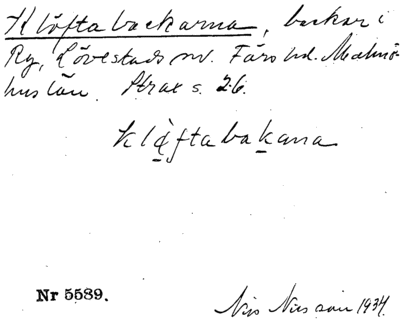 Klöftabackarna, backar i
Ry, Lövestads sn. Färs hd. Malmö-
hus län. Strax s. 26.
klȧ̀ftabakana
Nr 5589.
Nils Nilsson 1934.